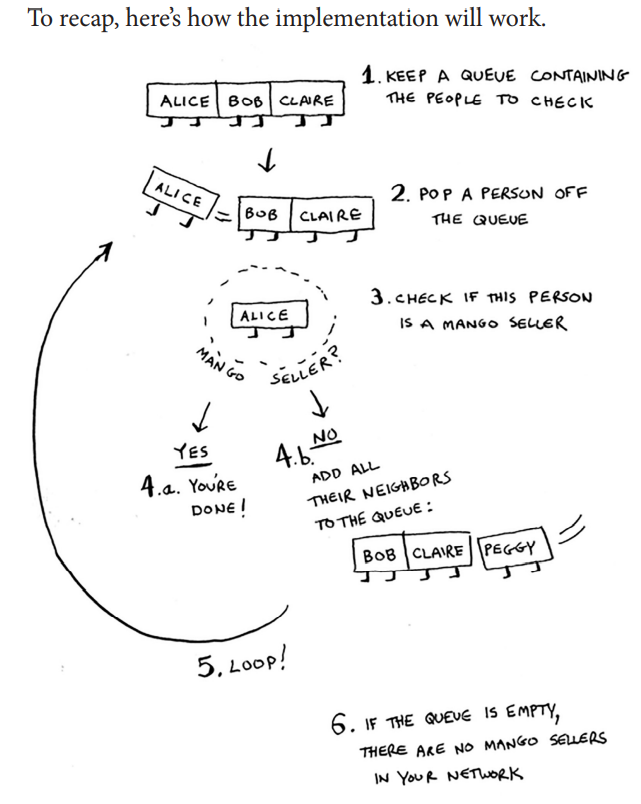 To recap, here's how the implementation will work.
ALICE BOB CLAIRE
1. KEEP A QUEUE CONTAINING
THE PEOPLE TO CHECK
ALICE
BOB CLAIRE
2. POP A PERSON OFF
THE QUEUE
ALICE
MANGO SELLER?
3. CHECK IF THIS PERSON
IS A MANGO SELLER
YES
4.a. YOU'RE
DONE!
NO
4.b.
ADD ALL
THEIR NEIGHBORS
TO THE QUEUE:
BOB CLAIRE PEGGY
5. LOOP!
6. IF THE QUEUE IS EMPTY,
THERE ARE NO MANGO SELLERS
IN YOUR NETWORK